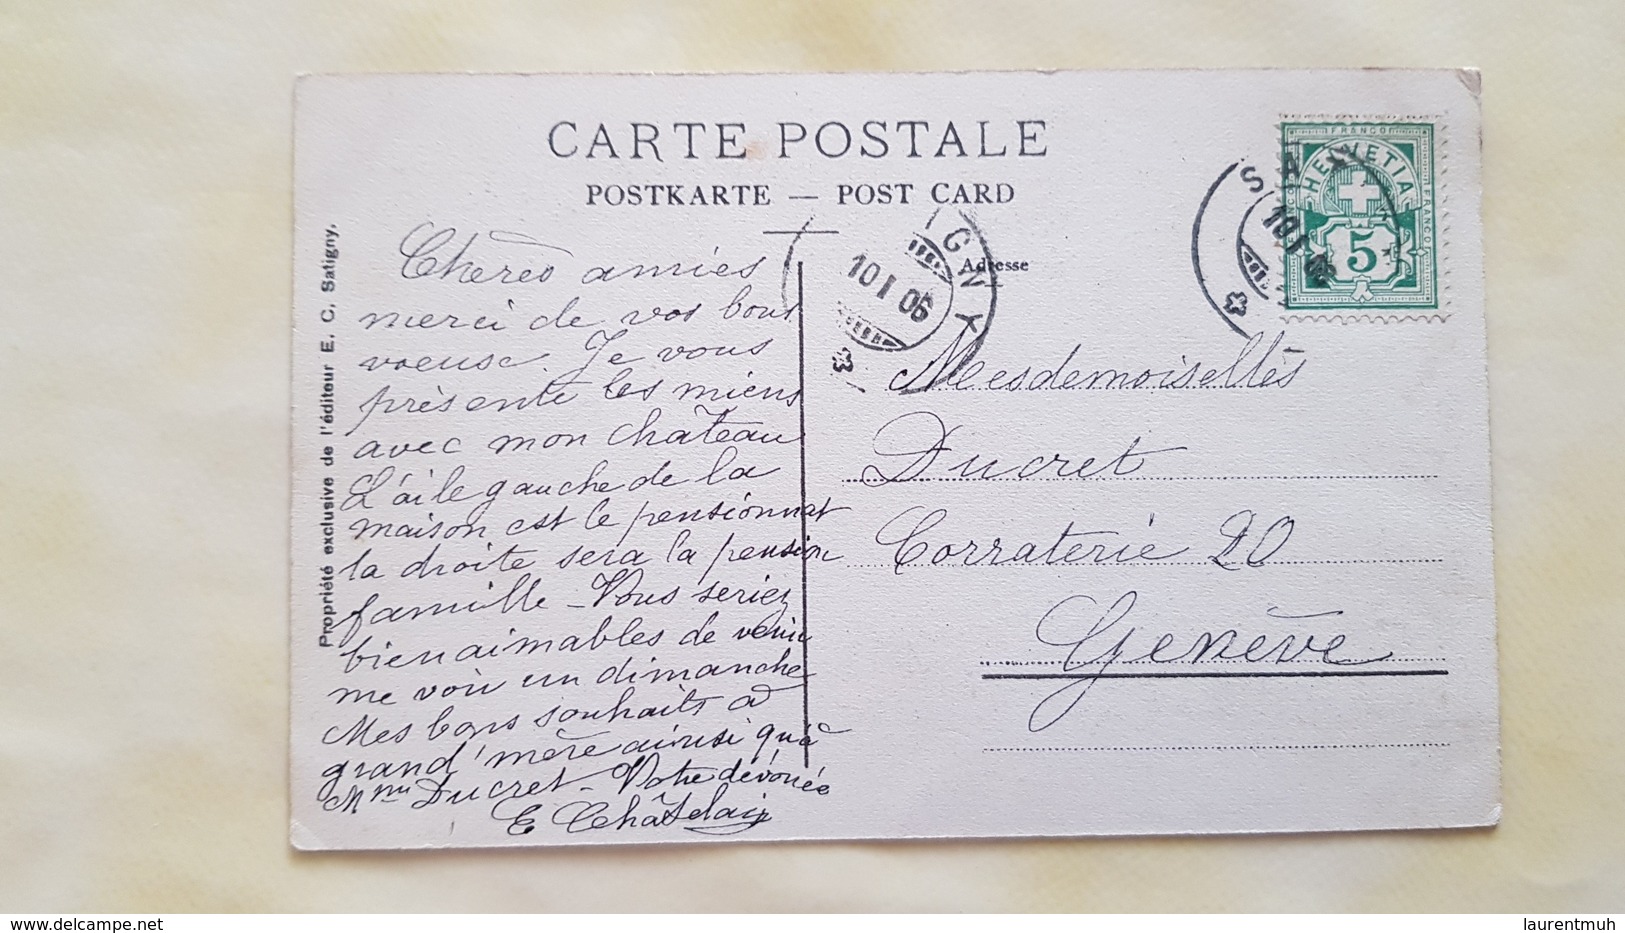 CARTE POSTALE
POSTKARTE — POST CARD
Propriété exclusive de l'éditeur E. C. Satigny,
Chères amies
merci de vos bons
voeusc. Je vous
présente les miens
avec mon château
L'aile gauche de la
maison est le pensionnat
la droite sera la pension
famille – Vous seriez
bien aimables de venir
me voir un dimanche
Mes bons souhaits à
grand'mère ainsi qu'à
Mme Ducret – Votre dévouée
E Châtelain
GNY
10 I 06
Adresse
SA
10 I 06
FRANCO
HELVETIA
FRANCO
5
Mesdemoiselles
Ducret
Corraterie 20
Genève
delcampe.net
laurentmuh